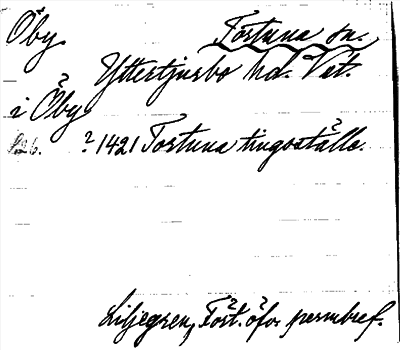 Öby Tortuna sn.
Yttertjurbo hd. Vät.
i Öby
? 1421 Tortuna tingsställe.
Liljegren, Fört. öfv. permbref.